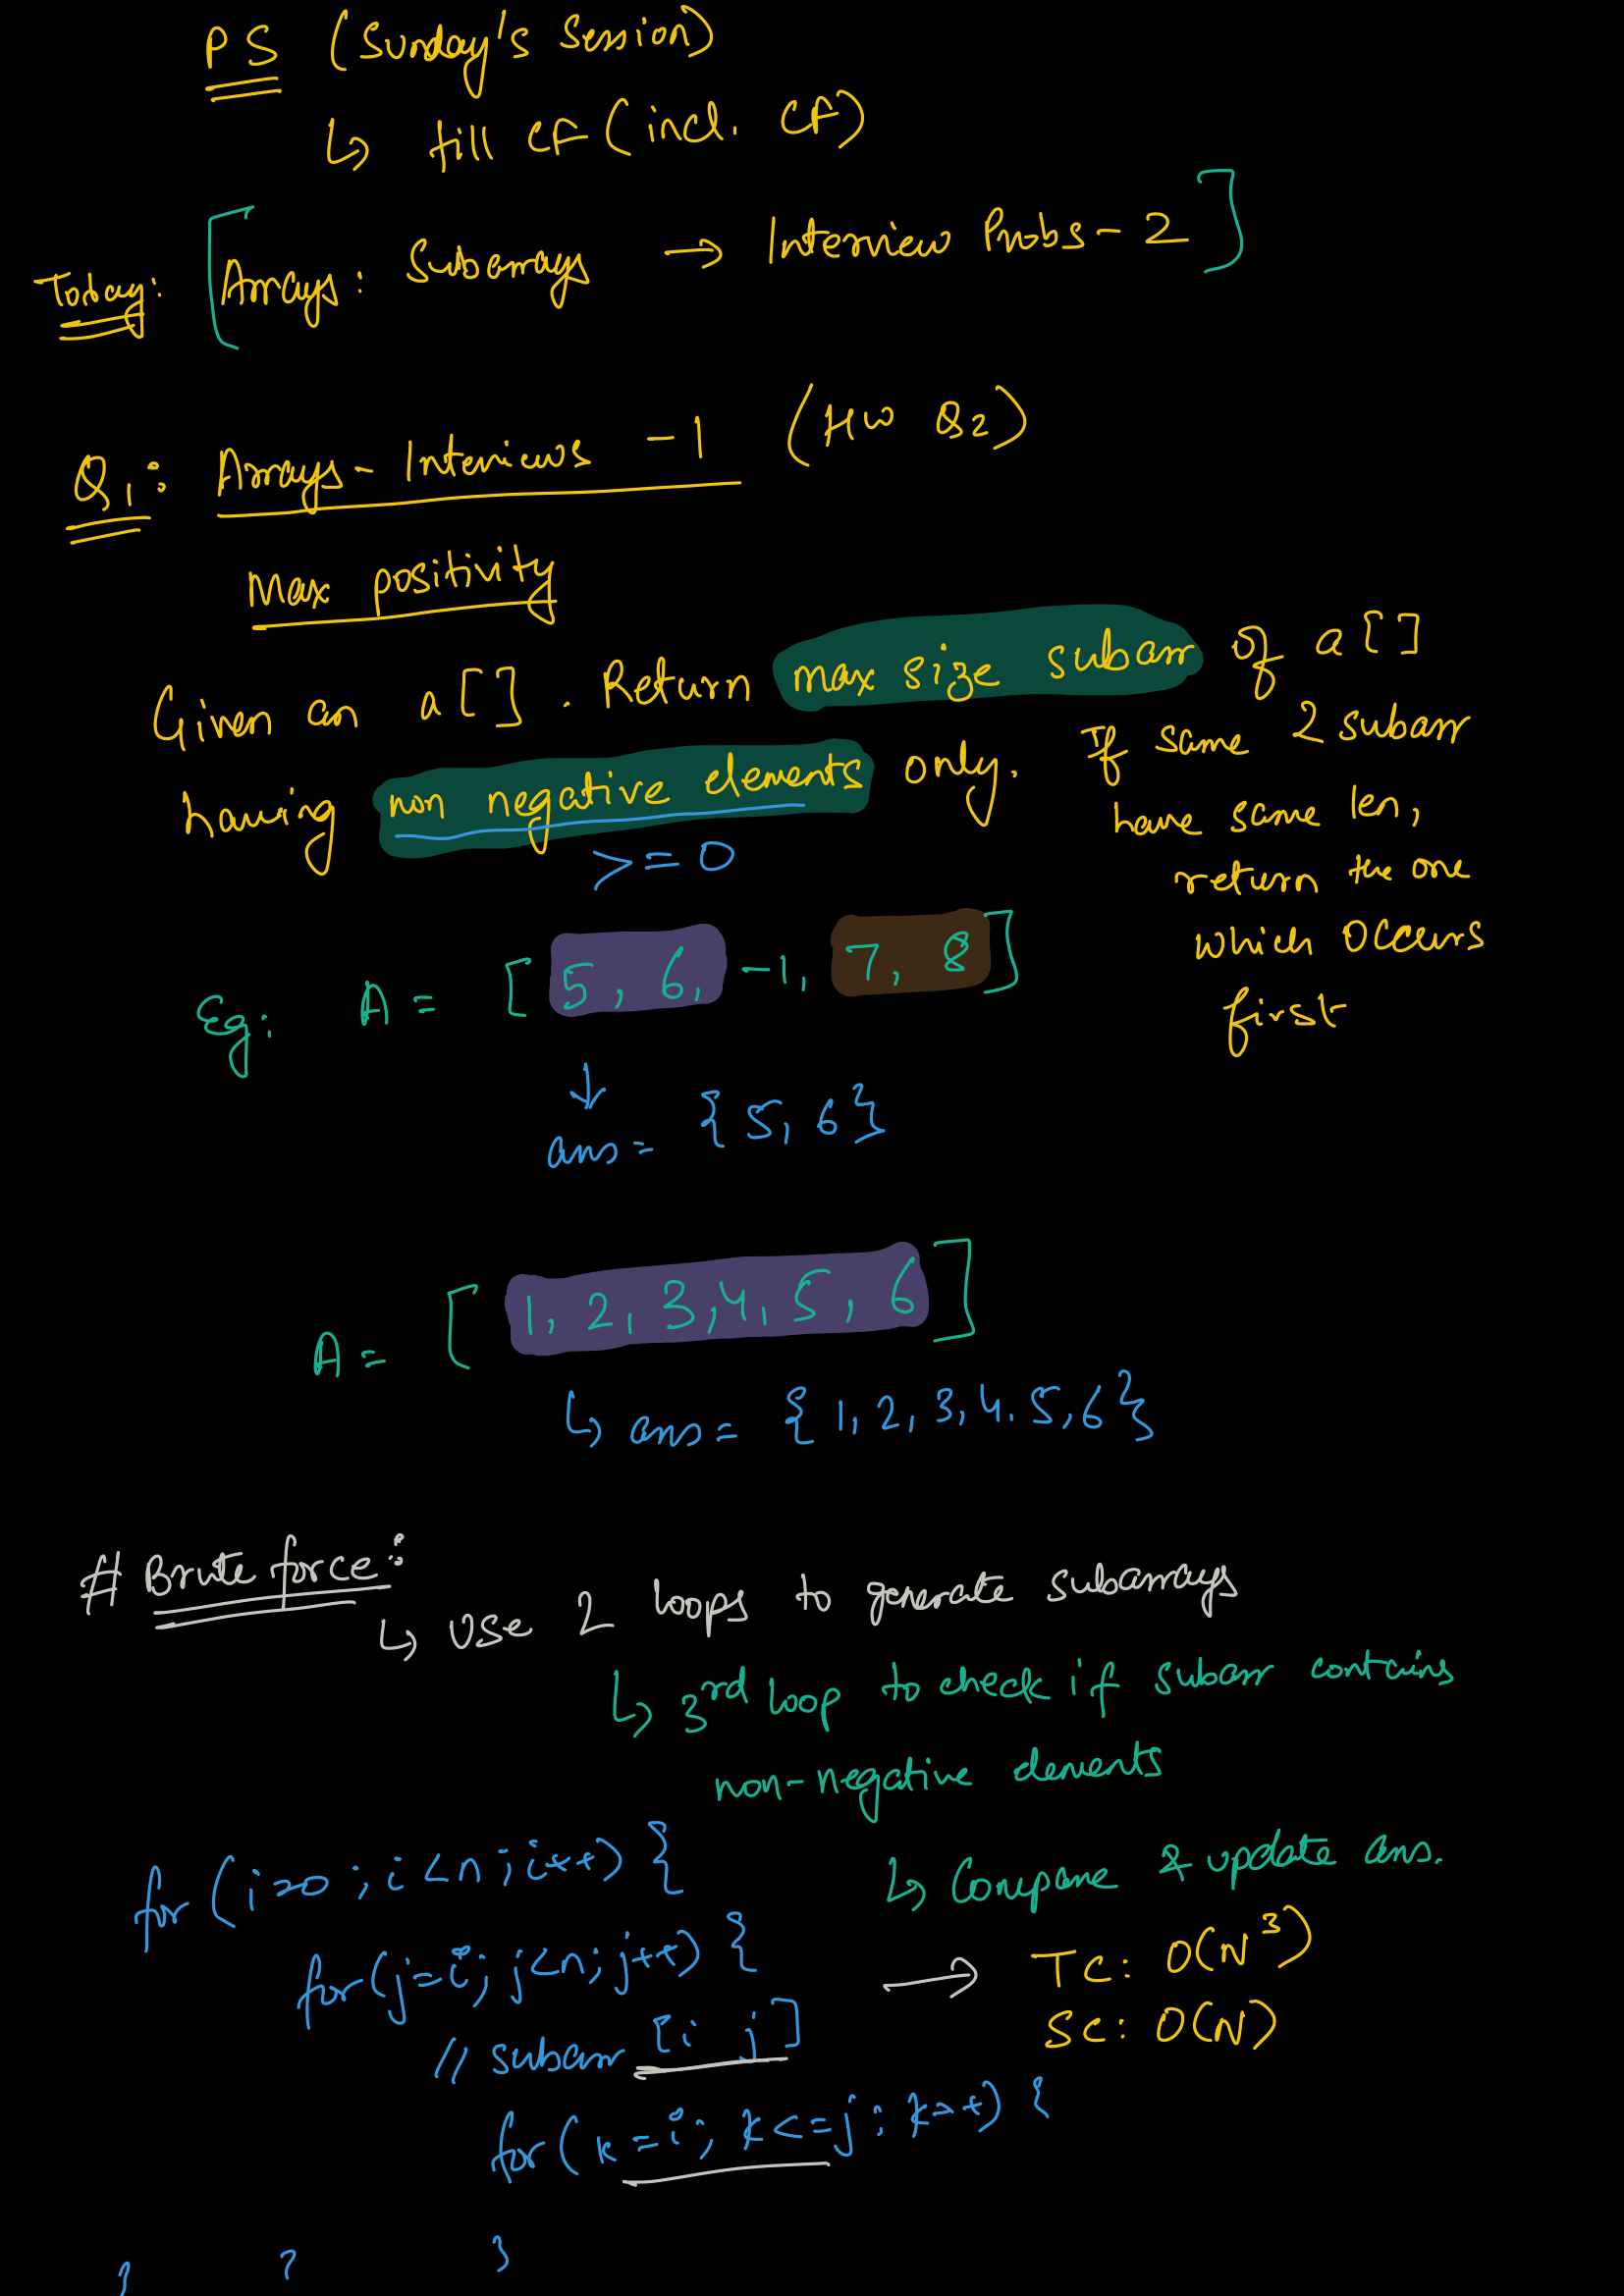 PS (Sunday's Session)
↳ till CF (incl. CF)
Today: [Arrays: Subarrays → Interview Probs - 2]
Q1: Arrays - Interviews - 1 (HW Q2)
Max positivity
Given an a[]. Return max size subarr of a[]
having non negative elements only. If same 2 subarr
have same len,
return the one
which occurs
first
>= 0
Eg: A = [5, 6, -1, 7, 8]
↓
ans = {5, 6}
A = [1, 2, 3, 4, 5, 6]
↳ ans = {1, 2, 3, 4, 5, 6}
# Brute force:
↳ Use 2 loops to generate subarrays
↳ 3rd loop to check if subarr contains
non-negative elements
↳ Compare & update ans.
for (i=0; i<n; i++) {
for (j=i; j<n; j++) {
// subarr [i j]
for (k=i; k<=j; k++) {
} } }
→ TC: O(N³)
SC: O(N)